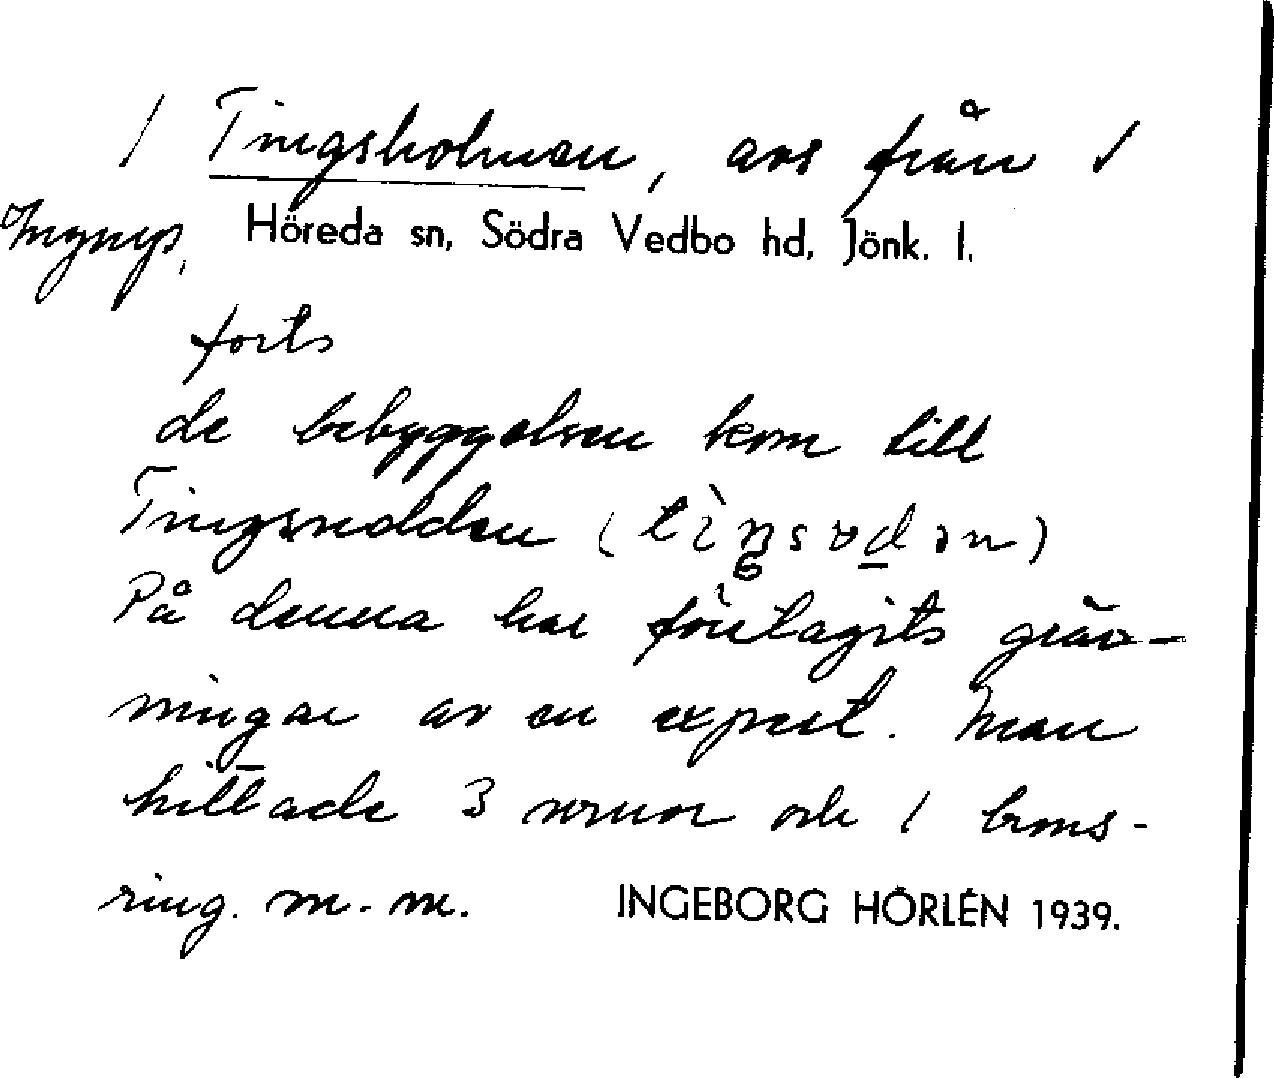 / Tingsholmen, avs från /
Ingarp, Höreda sn, Södra Vedbo hd, Jönk. l.
forts
de bebyggelsen kom till
Tingsudden (
På denna har företagits gräv-
ningar av en expert. Man
hittade 3 urnor och 1 brons-
ring. m.m. INGEBORG HÖRLÉN 1939.